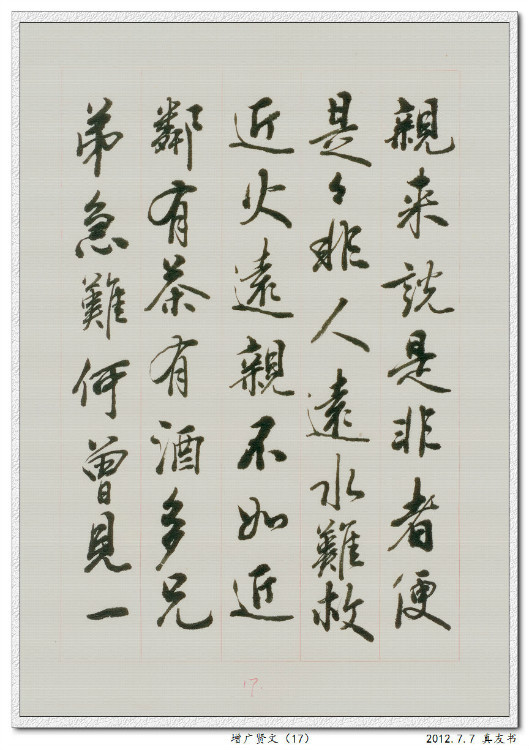 親来説是非者便
是々非人遠水難救
近火遠親不如近
鄰有茶有酒多兄
弟急難何曾見一
17.
增广贤文（17）
2012.7.7 真友书